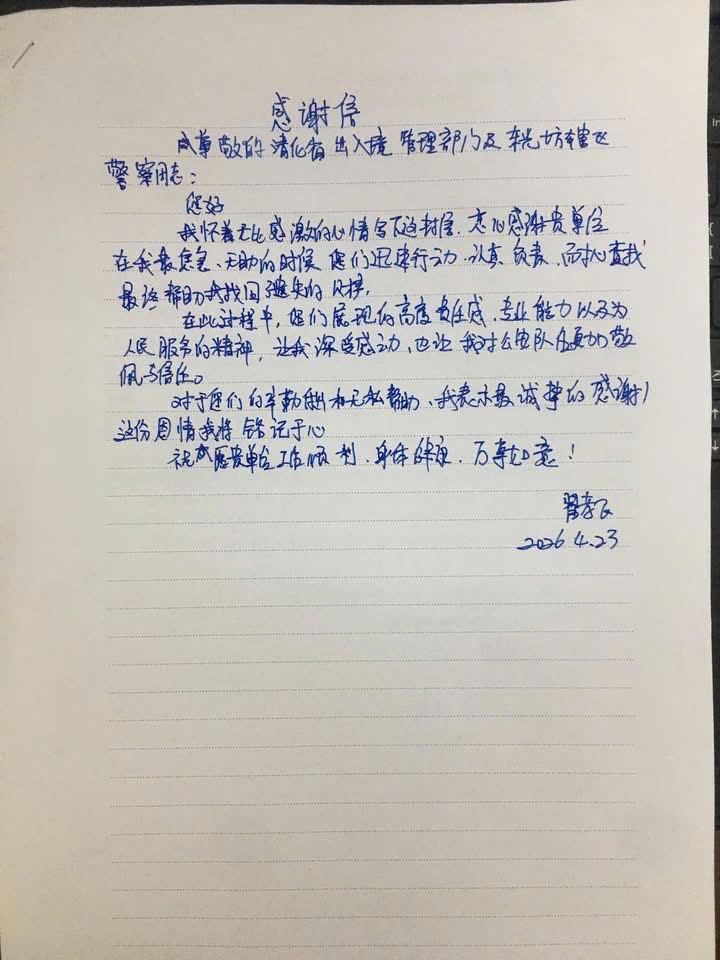 感谢信
尊敬的清化省出入境管理部门及
警察同志：
您好
我怀着无比感激的心情写下这封信，衷心感谢贵单位
在我最危急、无助的时候，您们迅速行动，认真负责，耐心查找
最终帮助我找回了遗失的
在此过程中，您们展现的高度责任感、专业能力以及为
人民服务的精神，让我深受感动，也让我对公安队伍更加敬
佩与信任。
对于您们的辛勤和无私帮助、我表示最诚挚的感谢！
这份恩情我将铭记于心
祝愿贵单位工作顺利、身体健康、万事如意！
2026.4.23